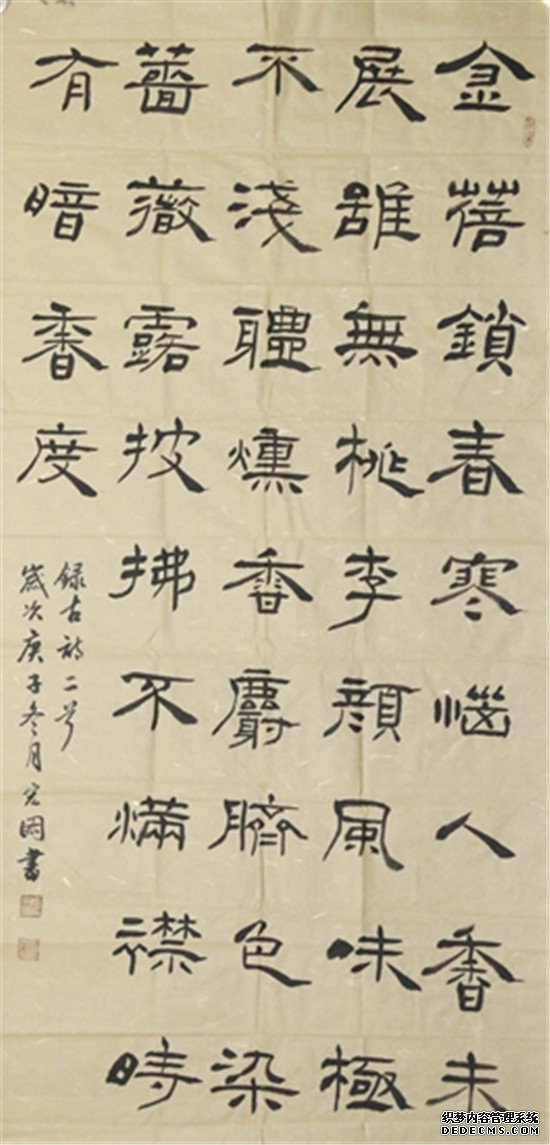 金蓓鎖春寒惱人香未
展雖無桃李顏風味極
不淺軆燻香麝臍色染
薔薇露披拂不滿襟時
有暗香度
録古詩二首
歲次庚子冬月書
织梦内容管理系统
DEDECMS.COM